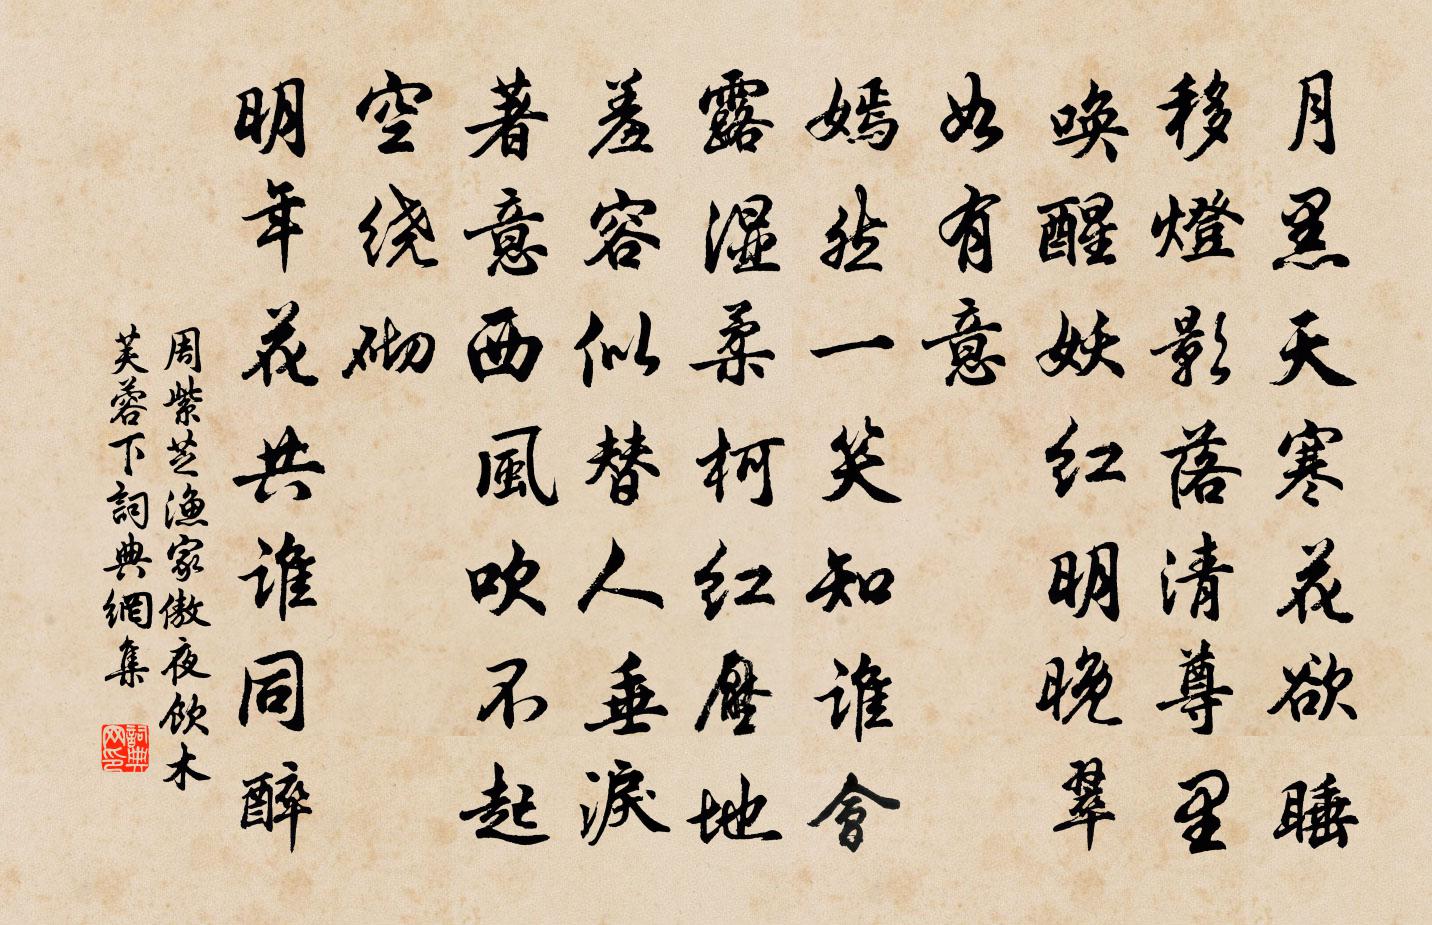 月黑天寒花欲睡
移燈影落清尊里
喚醒妖红明晚翠
如有意
嫣然一笑知谁會
露湿柔柯红壓地
羞容似替人垂淚
著意西風吹不起
空绕砌
明年花共谁同醉
周紫芝渔家傲夜饮木
芙蓉下詞典網集
詞典网印